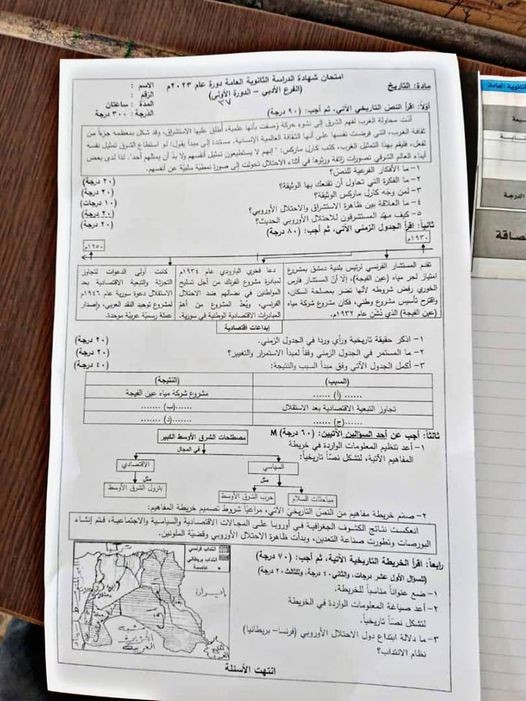 امتحان شهادة الدراسة الثانوية العامة دورة عام ٢٠٢٣م
(الفرع الأدبي – الدورة الأولى)
٣٧
مادة: التاريخ
الاسم :
الرقم :
المدة : ساعتان
الدرجة: ٣٠٠ درجة
أولاً: اقرأ النص التاريخي الآتي، ثم أجب: (٩٠ درجة)
أدت محاولة الغرب لفهم الشرق إلى نشوء حركة وصفت بأنها علمية، أطلق عليها الاستشراق، وقد شكل بمعظمه جزءاً من
ثقافة الغرب، التي فرضت نفسها على أنها الثقافة العالمية الإنسانية. مستندة إلى مبدأ يقول: لو استطاع الشرق تمثيل نفسه
لفعل، فليقم بهذا التمثيل الغرب، كتب كارل ماركس: " إنهم لا يستطيعون تمثيل أنفسهم ولا بد أن يمثلهم أحد". لذا لدى بعض
أبناء العالم الشرقي تصورات زائفة ورثوها في أثناء الاحتلال تحولت إلى صورة نمطية سلبية عن أنفسهم.
١- ما الأفكار الفرعية للنص؟ (٢٠ درجة)
٢- ما الفكرة التي تحاول أن تقنعك بها الوثيقة؟ (٢٠ درجة)
٣- لمن وجه كارل ماركس الوثيقة؟ (١٠ درجات)
٤- ما العلاقة بين ظاهرة الاستشراق والاحتلال الأوروبي؟ (٢٠ درجة)
٥- كيف مهّد المستشرقون للاحتلال الأوروبي الحديث؟ (٢٠ درجة)
ثانياً: اقرأ الجدول الزمني الآتي، ثم أجب: (٨٠ درجة)
١٩٣٠م
١٩٥٠م
تقدم المستشار الفرنسي لرئيس بلدية دمشق بمشروع
امتياز لجر مياه (عين الفيجة)، إلا أنّ المستشار فارس
الخوري رفض شروطه لأنها تضر بمصلحة السكان،
واقترح تأسيس مشروع وطني، فكان مشروع شركة مياه
(عين الفيجة) الذي دُشّن عام ١٩٣٢م.
دعا فخري البارودي عام ١٩٣٤م
لمبادرة مشروع الفرنك من أجل تسليح
المواطنين في نضالهم ضد الاحتلال
الفرنسي، ويُعدّ المشروع من أهمّ
المبادرات الاقتصادية الوطنية في سورية.
كانت أولى الدعوات لتجاوز
التجزئة والتبعية الاقتصادية بعد
الاستقلال دعوة سورية عام ١٩٤٦م
لمشروع توحيد النقد العربي، وإصدار
عملة رسميّة عربيّة موحدة.
إبداعات اقتصادية
١- اذكر حقيقة تاريخية ورأي، وردا في الجدول الزمني. (٢٠ درجة)
٢- ما المستمر في الجدول الزمني وفقاً لمبدأ الاستمرار والتغيير؟ (٢٠ درجة)
٣- أكمل الجدول الآتي وفق مبدأ السبب والنتيجة: (٤٠ درجة)
(السبب) (النتيجة)
......(أ)...... مشروع شركة مياه عين الفيجة
تجاوز التبعية الاقتصادية بعد الاستقلال ......(ب)......
......(ج)...... ......(د)......
ثالثاً: أجب عن أحد السؤالين الآتيين: (٦٠ درجة) M
١- أعد تنظيم المعلومات الواردة في خريطة
المفاهيم الآتية، لتشكل نصّاً تاريخياً:
مصطلحات الشرق الأوسط الكبير
في المجال
السياسي
الاقتصادي
مثل
مثل
مباحثات السلام
حرب الشرق الأوسط
بترول الشرق الأوسط
٢- صمّم خريطة مفاهيم من النص التاريخي الآتي، مراعياً شروط تصميم خريطة المفاهيم:
انعكست نتائج الكشوف الجغرافية في أوروبا على المجالات الاقتصادية والسياسية والاجتماعية، فتم إنشاء
البورصات وتطورت صناعة التعدين، وبدأت ظاهرة الاحتلال الأوروبي وقضيّة الملونين.
رابعاً: اقرأ الخريطة التاريخية الآتية، ثم أجب: (٧٠ درجة)
(للسؤال الأول عشر درجات، والثاني ٤٠ درجة، وللثالث ٢٠ درجة)
١- ضع عنواناً مناسباً للخريطة.
٢- أعد صياغة المعلومات الواردة في الخريطة
لتشكل نصّاً تاريخياً.
٣- ما دلالة ابتداع دول الاحتلال الأوروبي (فرنسا- بريطانيا)
نظام الانتداب؟
انتداب فرنسي
انتداب بريطاني
إيران
شبه
الجزيرة
العربية
انتهت الأسئلة
الدرجة